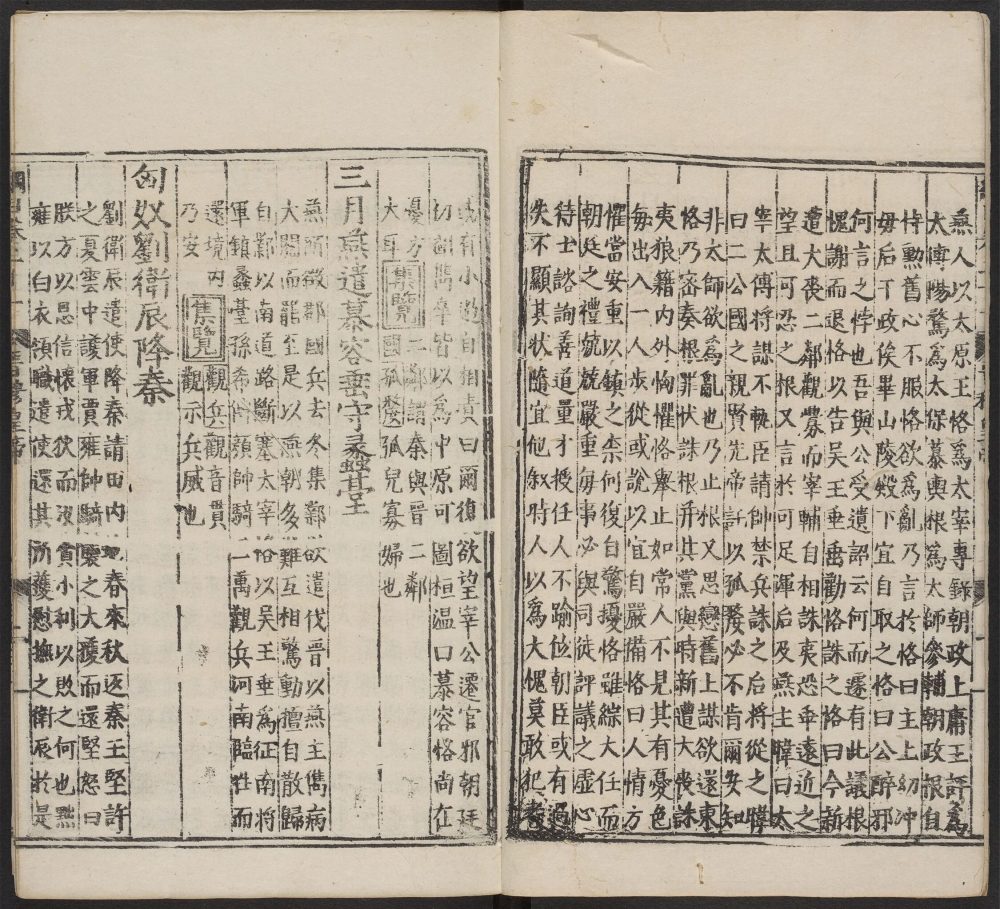 燕人以太原王恪爲太宰專錄朝政上庸王評爲
太傅陽騖爲太保慕輿根爲太師參輔朝政根自
恃勲舊心不服恪欲爲亂乃言於恪曰主上幼冲
毋后干政俟畢山陵殿下宜自取之恪曰公醉邪
何言之悖也吾與公受遺詔云何而遽有此議根
愧謝而退恪以告吳王垂垂勸恪誅之恪曰今新
遭大喪二鄰觀釁而宰輔自相誅夷恐乖遠近之
望且可忍之根又言於可足渾后及燕主暐曰太
宰太傅將謀不軌臣請帥禁兵誅之后將從之暐
曰二公國之親賢先帝託以孤嫠必不肯爾安知
非太師欲爲亂也乃止根又思戀舊土謀欲還東
恪乃密奏根罪狀誅根并其黨與時新遭大喪誅
夷狼籍内外恟懼恪舉止如常人不見其有憂色
每出入一人步從或說以宜自嚴備恪曰人情方
懼當安重以鎮之柰何復自驚擾恪雖綜大任而
朝廷之禮兢兢嚴重每事必與同徒評議之虛心
待士諮詢善道量才授任人不踰位朝臣或有過
失不顯其狀隨宜他叙時人以爲大愧莫敢犯者
或有小過自相責曰爾復欲望宰公遷官邪朝廷
初聞儁卒皆以爲中原可圖桓温曰慕容恪尚在
憂方大耳 集覽 二鄰謂秦與晉二鄰
國孤嫠孤兒寡婦也
三月燕遣慕容垂守蠡臺
燕所徵郡國兵去冬集鄴欲遣伐晉以燕主儁病
大閱而罷至是以燕朝多難互相驚動擅自散歸
自鄴以南道路斷塞太宰恪以吳王垂爲征南將
軍鎮蠡臺孫希傅顏帥騎一萬觀兵河南臨淮而
還境内
乃安 集覽 觀兵觀音貫
觀示兵威也
匈奴劉衛辰降秦
劉衛辰遣使降秦請田内地春來秋返秦王堅許
之夏雲中護軍賈雍帥騎襲之大獲而還堅怒曰
朕方以恩信懷戎狄而汝貪小利以敗之何也黜
雍以白衣領職遣使還其所獲慰撫之衛辰於是